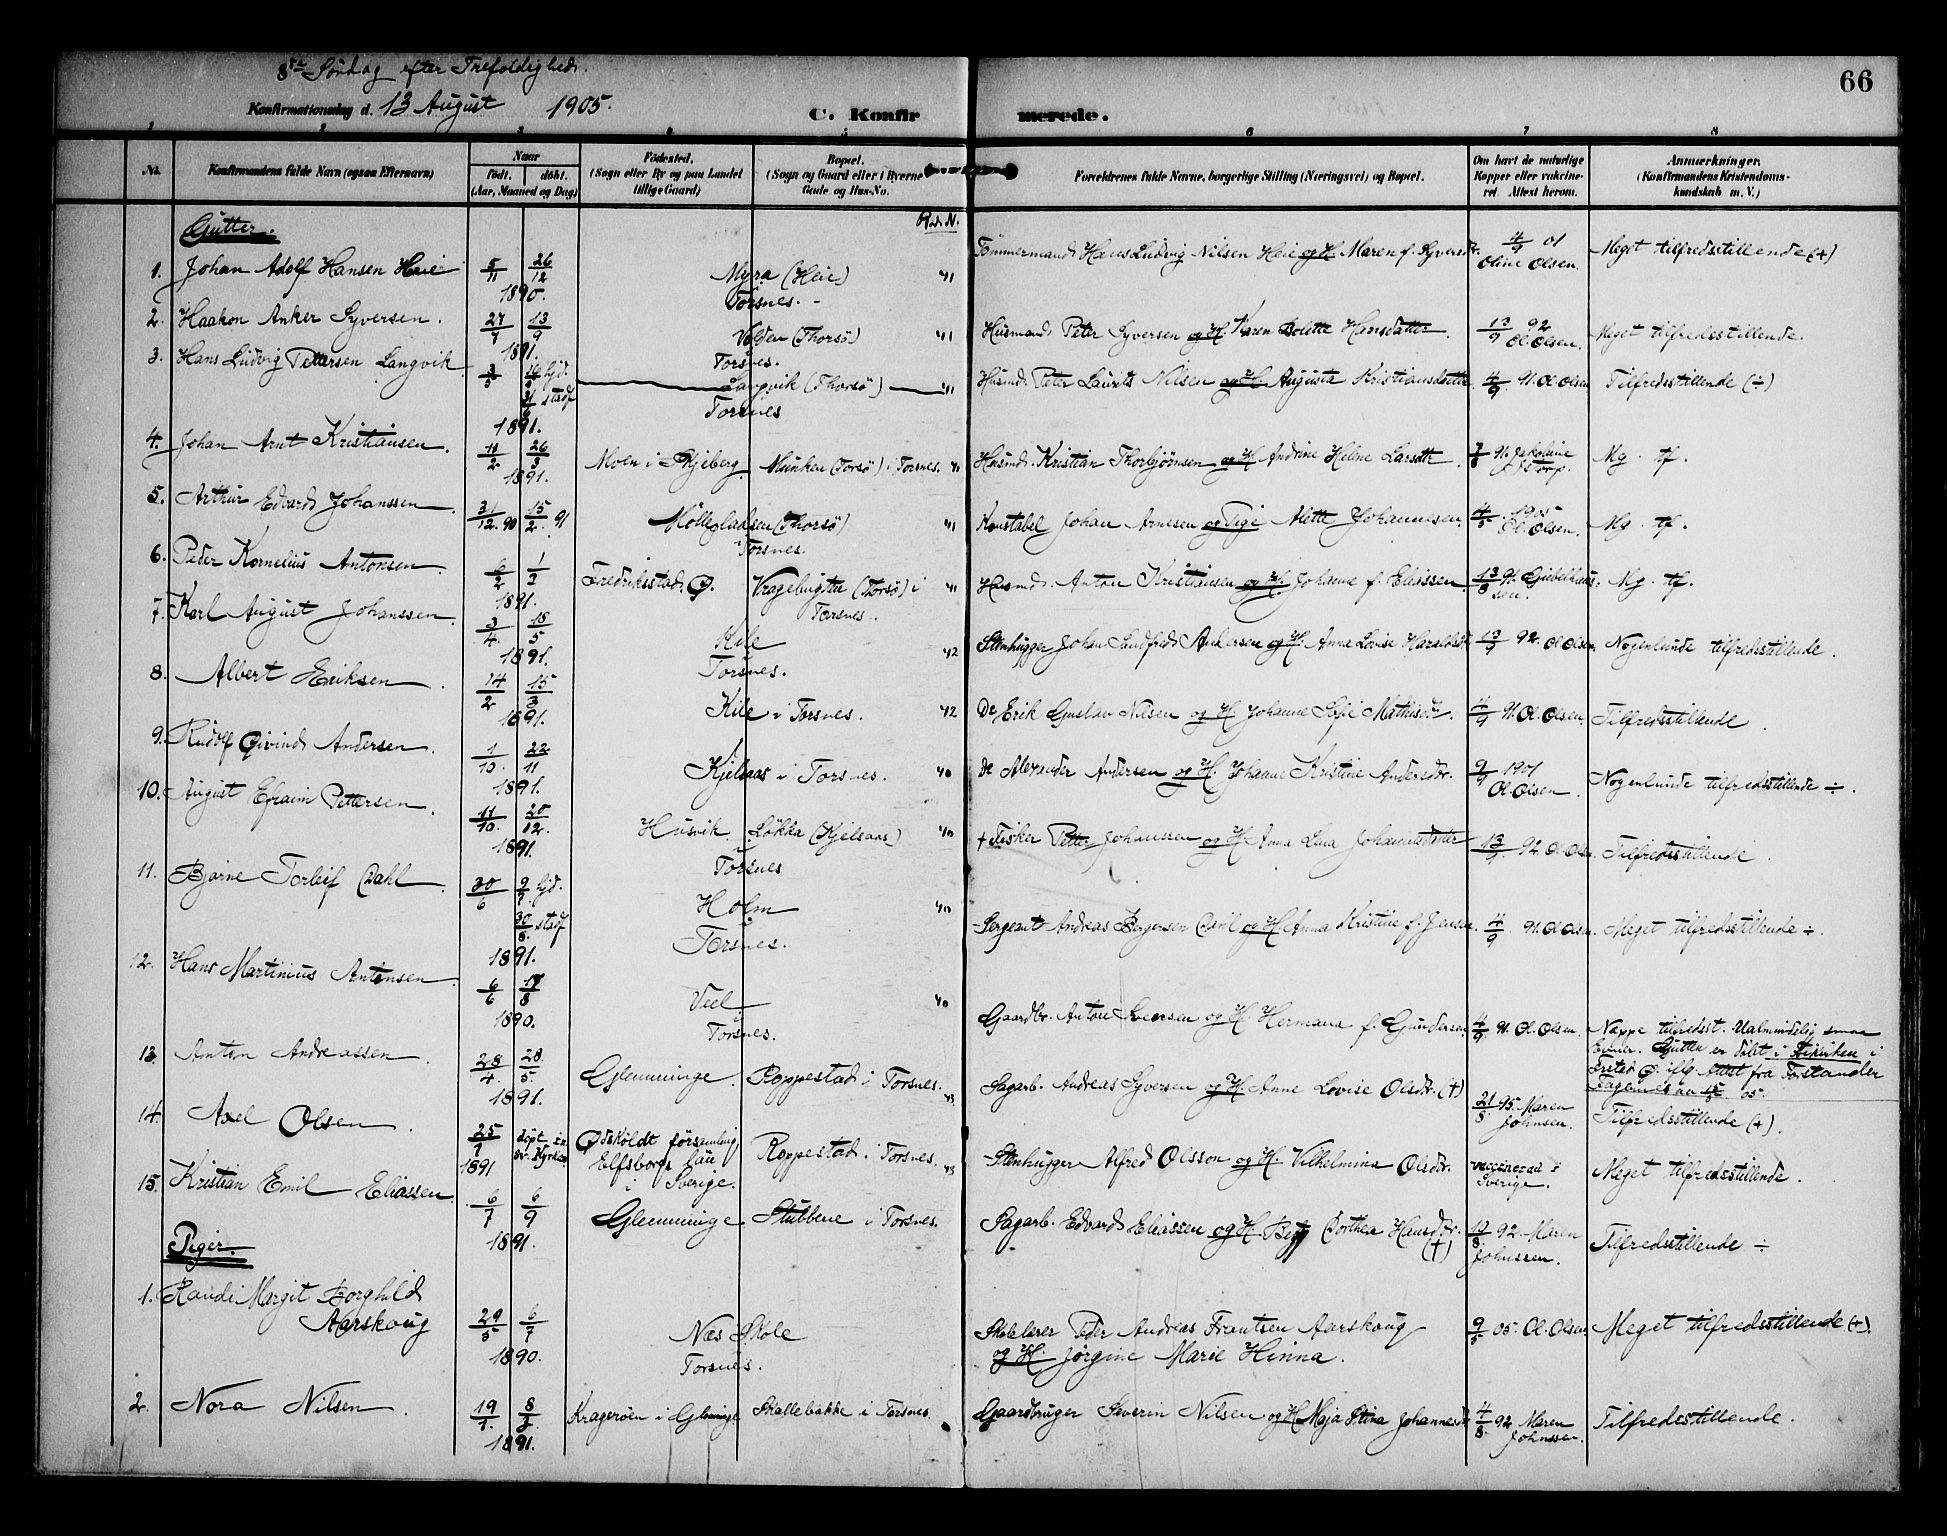 8de Söndag efter Trefoldighed.
Konfirmationsdag d. 13 August 1905.
C. Konfirmerede.
66
1 2 3 4 5 6 7 8
No. Konfirmandens fulde Navn (ogsaa Efternavn)
Naar födt. döbt. (Aar, Maaned og Dag)
Födested. (Sogn eller By og paa Landet tillige Gaard)
Bopæl. (Sogn og Gaard eller i Byerne Gade og Hus-No.
Forældrenes fulde Navne, borgerlige Stilling (Næringsvei) og Bopæl.
Om havt de naturlige Kopper eller vakcineret. Attest herom.
Anmærkninger. (Konfirmandens Kristendomskundskab m. V.)
Gutter.
1. Johan Adolf Hansen Heie 5/11 26/12 1890. Myra (Heie) Torsnes. 41 Tömmermand Hans Ludvig Nilsen Heie og H. Maren f. Syversdtr. 4/9 01 Oline Olsen. Meget tilfredsstillende (+)
2. Haakon Anker Syversen. 27/7 13/9 1891. Volden (Thorsö) Torsnes. 41 Husmand Peter Syversen og H. Karen Bolette Hansdatter. 13/9 92 Ol. Olsen. Meget tilfredsstillende.
3. Hans Ludvig Pettersen Langvik. 3/5 hjd. 31/6 stadf 1891. Langvik (Thorsö) Torsnes 41 Husmd. Peter Laurits Nilsen og H. Augusta Kristiansdatter 4/9 91. Ol Olsen Tilfredsstillende (÷)
4. Johan Arnt Kristiansen. 11/2 26/3 1891. Moen i Skjeberg. Munken (Torsö) i Torsnes. 41 Husmd. Kristian Thorbjörnsen og H. Andrine Helene Larsdtr. 91. Jakobine Mg. tf.
5. Arthur Edvard Johanssen. 31/12. 90 15/2. 91 Möllegladsen (Thorsö) Torsnes. 41 Konstabel Johan Arnesen og Pige Alette Johannesen. 4/5. 1905 Ol. Olsen. Mg. tf.
6. Peder Kornelius Antonsen. 6/2 1/3 1891. Fredriksstad. Ø. Vragebugta (Thorsö) i Torsnes. 41 Husmd. Anton Kristiansen og H. Johanne f. Eliassen. 13/8 91. Mg. tf.
7. Karl August Johanssen. 3/4. 18/5 1891. Kile Torsnes. 42 Stenhugger Johan Sandfred Andersen og H. Anna Lovise Haraldsdtr. 13/9 92. Ol Olsen. Nogenlunde tilfredsstillende.
8. Albert Eriksen. 14/2 15/3 1891. Kile i Torsnes. 42 Do Erik Gustav Nilsen og H. Johanne Sofie Mathisdtr. 4/9 91. Ol. Olsen Tilfredsstillende.
9. Rudolf Øivind Andersen. 1/10. 22/11 1891. Kjelsaas i Torsnes. 40 do Alexander Andersen og H. Johanne Kristine Andersdtr. 9/9 1901 Ol. Olsen. Nogenlunde tilfredsstillende ÷.
10. August Efraim Pettersen. 11/10. 20/12. 1891. Husvik Løkka (Kjelsaas) i Torsnes 40 + Fisker Petter Johanssen og H. Anna Lena Johannesdatter 13/9. 92 Ol Olsen. Tilfredsstillende.
11. Bjarne Torleif Dahl. 30/6 9/7. hjd. 30/8. stadf 1891. Holm i Torsnes. 40 Sergeant Andreas Borgersen Dahl og H. Anna Kristine f. Jensen. 4/9 91. Ol Olsen. Meget tilfredsstillende ÷.
12. Hans Martinius Antonsen. 6/6 17/8 1890. Veel i Torsnes. 40 Gaardbr. Anton Svensen og H. Hermana f. Gundersen 4/9. 91. Ol. Olsen Næppe tilfredsst. Ualmindelig smaa Evner. Gutten er döbt i Frikirken i Fr.stad Ø. iflg. Attest fra Forstander
13. Anton Andreassen. 28/4. 28/5. 1891. Glemminge. Roppestad i Torsnes. 43 Sagarb. Andreas Syversen og H. Anne Lovise Olsdtr. (+) 21/8 95. Maren Johnsen. Tilfredsstillende (+).
14. Axel Olsen. 25/7 1891 döpt i sv. Kyrkan Ødsköldt församling Elfsborgs län i Sverige. Roppestad i Torsnes. 43 Stenhugger Alfred Olsson og H. Vilhelmina Olsdtr. vaccinerad i Sverige. Meget tilfredsstillende.
15. Kristian Emil Eliassen. 6/7 6/9 1891. Glemminge Stubbene i Torsnes. Sagarb. Edvard Eliassen og H. Dorthea Hansdtr. (+) 19/8. 92. Maren Johnssen. Tilfredsstillende ÷
Piger.
1. Randi Margit Borghild Aarskoug 29/5 6/7 1890. Næs Skole Torsnes. Skolelærer Peder Andreas Frantsen Aarskoug og H. Jørgine Marie Hinna. 9/5 05. Ol. Olsen. Meget tilfredsstillende (+).
2. Nora Nilsen. 19/1. 8/3. 1891. Kragerøen i Glemminge Skallebakke i Torsnes. Gaardbruger Severin Nilsen og H. Maja Stina Johannesdtr 4/8. 92. Maren Johnssen. Tilfredsstillende.